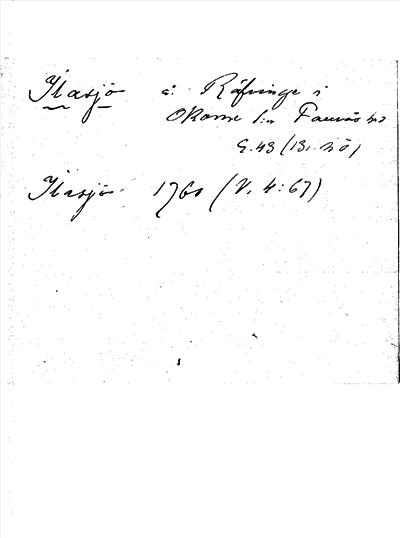 Ilasjö å Räfvinge i
Okome sn Faurås hd
G.43 (13. NÖ)
Ilasjö 1760 (V. 4:67)